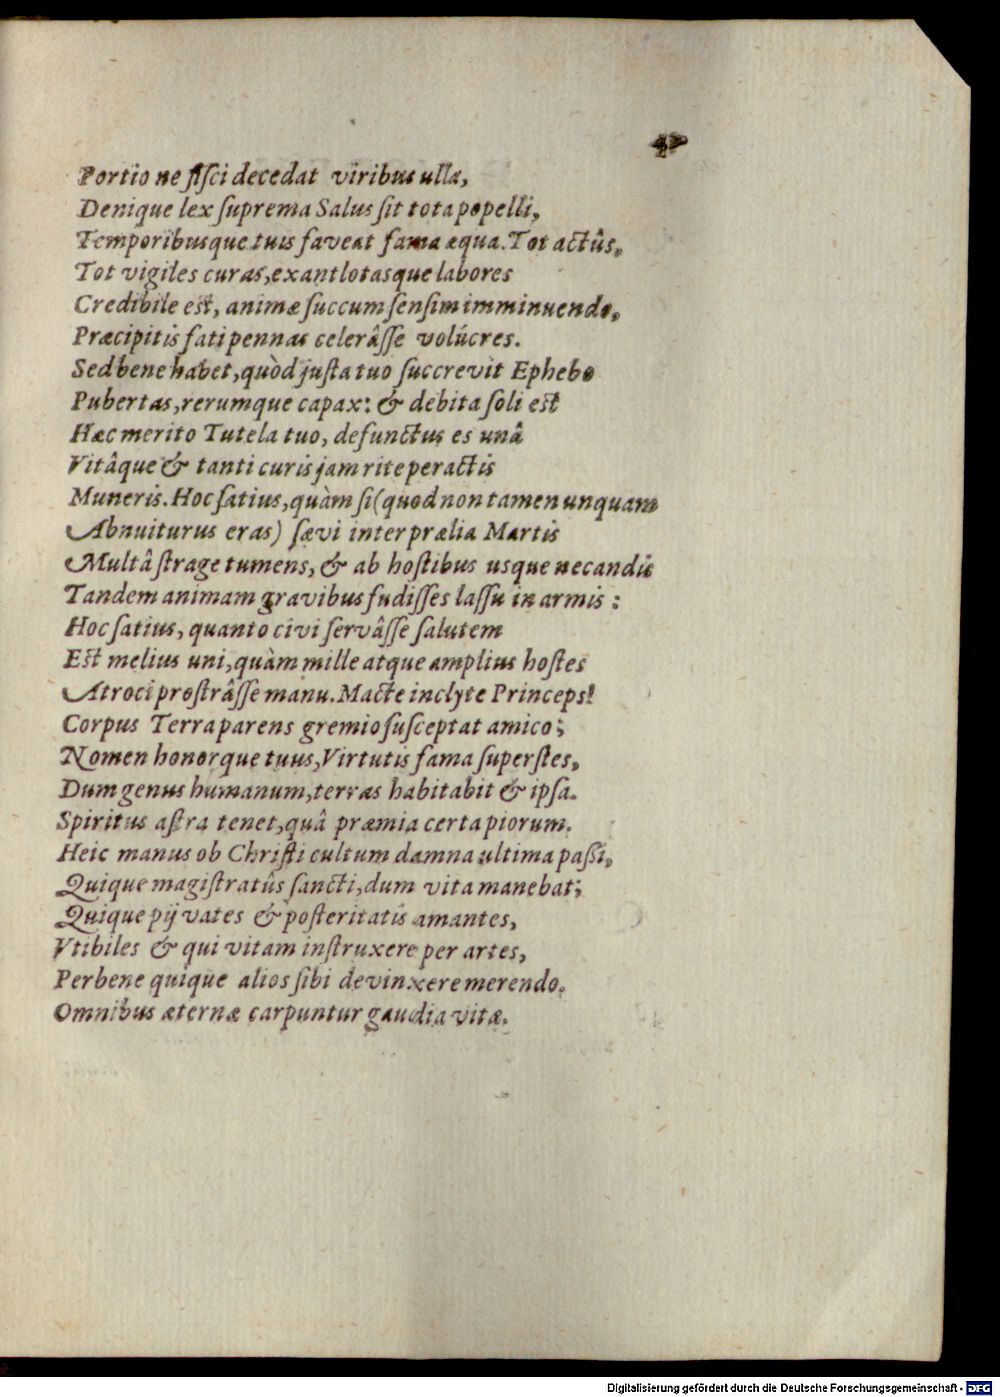 Portio ne fisci decedat viribus ulla,
Denique lex suprema Salus sit tota popelli,
Temporibusque tuis faveat fama æqua. Tot actûs,
Tot vigiles curas, exantlotasque labores
Credibile est, animæ succum sensim imminuendo,
Præcipitis fati pennas celerâsse volúcres.
Sed bene habet, quòd justa tuo succrevit Ephebo
Pubertas, rerumque capax: & debita soli est
Hæc merito Tutela tuo, defunctus es unâ
Vitâque & tanti curis jam rite peractis
Muneris. Hoc satius, quàm si (quod non tamen unquam
Abnuiturus eras) sævi inter prælia Martis
Multâ strage tumens, & ab hostibus usque necandis
Tandem animam gravibus fudisses lassu in armis:
Hoc satius, quanto civi servâsse salutem
Est melius uni, quàm mille atque amplius hostes
Atroci prostrâsse manu. Macte inclyte Princeps!
Corpus Terra parens gremio susceptat amico;
Nomen honorque tuus, Virtutis fama superstes,
Dum genus humanum, terras habitabit & ipsa.
Spiritus astra tenet, quâ præmia certa piorum.
Heic manus ob Christi cultum damna ultima passi,
Quique magistratûs sancti, dum vita manebat;
Quique pij vates & posteritatis amantes,
Vtibiles & qui vitam instruxere per artes,
Perbene quique alios sibi devinxere merendo.
Omnibus æternæ carpuntur gaudia vitæ.
Digitalisierung gefördert durch die Deutsche Forschungsgemeinschaft - DFG